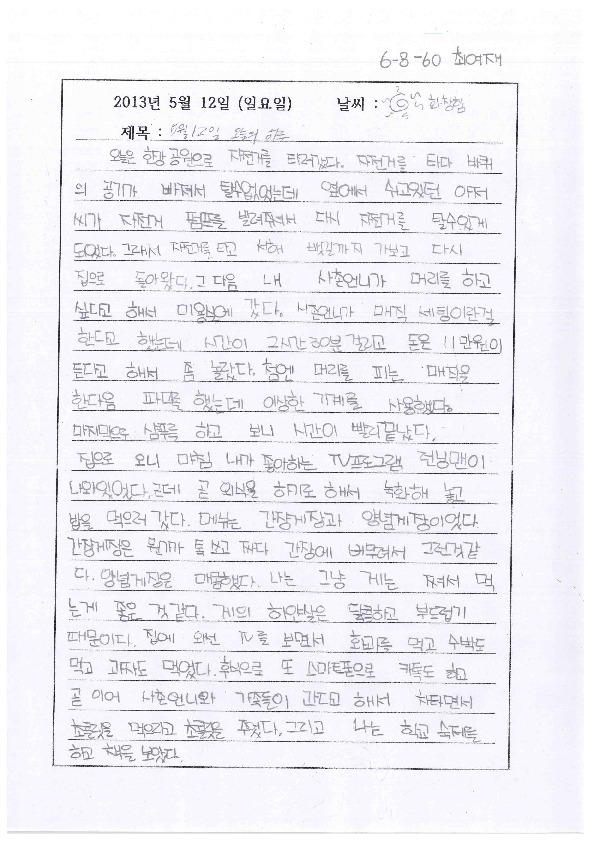 6-8-60 최여재
2013년 5월 12일 (일요일) 날씨 : 화창함
제목 : 5월12일 오늘의 하루
오늘은 한강 공원으로 자전거를 타러갔다. 자전거를 타다 바퀴
의 공기가 빠져서 탈수없었는데 옆에서 쉬고있던 아저
씨가 자전거 펌프를 빌려줘서 다시 자전거를 탈수있게
되었다. 그래서 자전거를 타고 서해 뱃길까지 가보고 다시
집으로 돌아왔다. 그 다음 내 사촌언니가 머리를 하고
싶다고 해서 미용실에 갔다. 사촌언니가 매직 세팅이란걸
한다고 했는데 시간이 2시간 30분 걸리고 돈은 11만원이
든다고 해서 좀 놀랐다. 첨엔 머리를 피는 매직을
한다음 파마를 했는데 이상한 기계를 사용했다.
마지막으로 샴푸를 하고 보니 시간이 빨리끝났다.
집으로 오니 마침 내가 좋아하는 TV프로그램 런닝맨이
나와있었다. 근데 곧 외식을 하기로 해서 녹화해 놓고
밥을 먹으러 갔다. 메뉴는 간장게장과 양념게장이었다
간장게장은 뭔가가 톡 쏘고 짜다 간장에 버무려서 그런것같
다. 양념게장은 매콤했다. 나는 그냥 게는 쪄서 먹
는게 좋은 것 같다. 게의 하얀살은 달콤하고 부드럽기
때문이다. 집에 와선 TV를 보면서 호떡를 먹고 수박도
먹고 과자도 먹었다. 후식으로 또 스마트폰으로 카톡도 하고
곧 이어 사촌언니와 가족들이 간다고 해서 차타면서
초콜릿을 먹으라고 초콜릿을 주셨다. 그리고 나는 학교 숙제를
하고 책을 보았다.